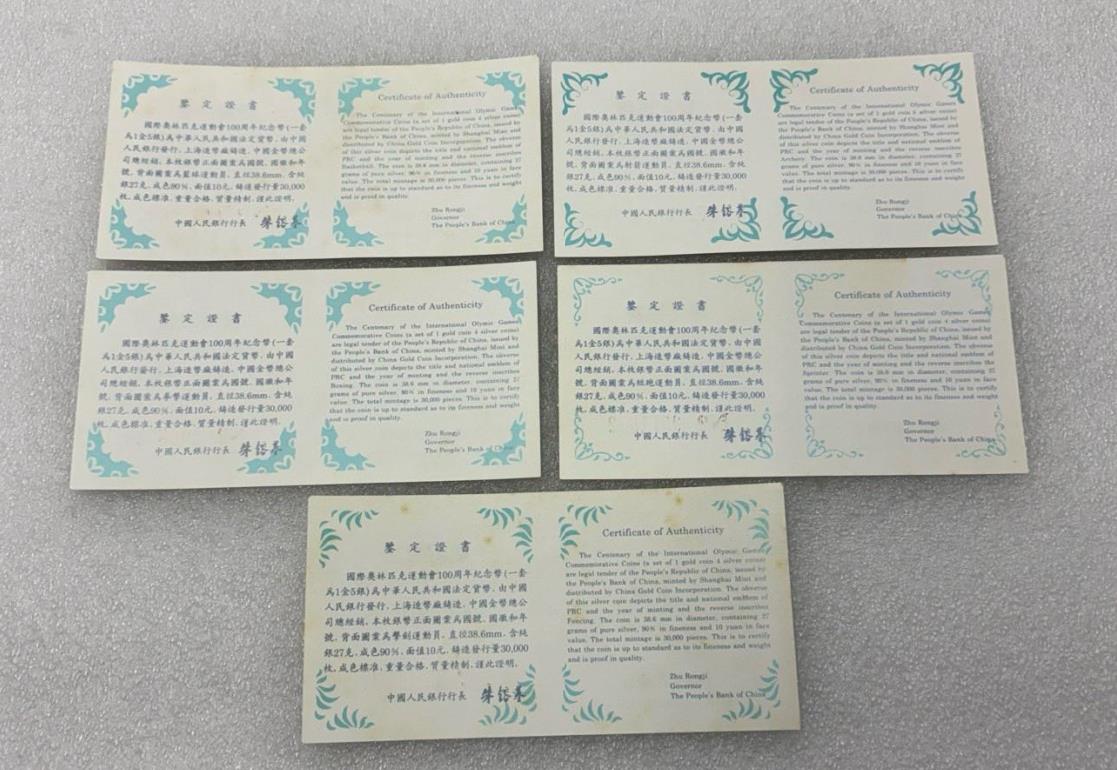 鉴定證書
國際奧林匹克運動會100周年纪念幣(一套
爲1金5銀)爲中華人民共和國法定貨幣.由中國
人民銀行發行.上海造幣廠鑄造.中國金幣總公
司總經銷.本枚銀幣正面圖案爲國號、國徽和年
號.背面圖案爲籃球運動員.直徑38.6mm.含純
銀27克.成色90%.面值10元.鑄造發行量30,000
枚.成色標准.重量合格.質量精制.謹此證明.
中國人民銀行行長 朱鎔基
Certificate of Authenticity
The Centenary of the International Olymic Games
Commemorative Coins (a set of 1 gold coin 4 silver coins)
are legal tender of the People's Republic of China, issued by
the People's Bank of China, minted by Shanghai Mint and
distributed by China Gold Coin Incorporation. The obverse
of this silver coin depicts the title and national emblem of
PRC and the year of minting and the reverse inscribes
Basketball. The coin is 38.6 mm in diameter, containing 27
grams of pure silver, 90% in fineness and 10 yuan in face
value. The total mintage is 30,000 pieces. This is to certify
that the coin is up to standard as to its fineness and weight
and is proof in quality.
Zhu Rongji
Governor
The People's Bank of China
鉴定證書
國際奧林匹克運動會100周年纪念幣(一套
爲1金5銀)爲中華人民共和國法定貨幣.由中國
人民銀行發行.上海造幣廠鑄造.中國金幣總公
司總經銷.本枚銀幣正面圖案爲國號、國徽和年
號.背面圖案爲射箭運動員.直徑38.6mm.含純
銀27克.成色90%.面值10元.鑄造發行量30,000
枚.成色標准.重量合格.質量精制.謹此證明.
中國人民銀行行長 朱鎔基
Certificate of Authenticity
The Centenary of the International Olymic Games
Commemorative Coins (a set of 1 gold coin 4 silver coins)
are legal tender of the People's Republic of China, issued by
the People's Bank of China, minted by Shanghai Mint and
distributed by China Gold Coin Incorporation. The obverse
of this silver coin depicts the title and national emblem of
PRC and the year of minting and the reverse inscribes
Archery. The coin is 38.6 mm in diameter, containing 27
grams of pure silver, 90% in fineness and 10 yuan in face
value. The total mintage is 30,000 pieces. This is to certify
that the coin is up to standard as to its fineness and weight
and is proof in quality.
Zhu Rongji
Governor
The People's Bank of China
鉴定證書
國際奧林匹克運動會100周年纪念幣(一套
爲1金5銀)爲中華人民共和國法定貨幣.由中國
人民銀行發行.上海造幣廠鑄造.中國金幣總公
司總經銷.本枚銀幣正面圖案爲國號、國徽和年
號.背面圖案爲拳擊運動員.直徑38.6mm.含純
銀27克.成色90%.面值10元.鑄造發行量30,000
枚.成色標准.重量合格.質量精制.謹此證明.
中國人民銀行行長 朱鎔基
Certificate of Authenticity
The Centenary of the International Olymic Games
Commemorative Coins (a set of 1 gold coin 4 silver coins)
are legal tender of the People's Republic of China, issued by
the People's Bank of China, minted by Shanghai Mint and
distributed by China Gold Coin Incorporation. The obverse
of this silver coin depicts the title and national emblem of
PRC and the year of minting and the reverse inscribes
Boxing. The coin is 38.6 mm in diameter, containing 27
grams of pure silver, 90% in fineness and 10 yuan in face
value. The total mintage is 30,000 pieces. This is to certify
that the coin is up to standard as to its fineness and weight
and is proof in quality.
Zhu Rongji
Governor
The People's Bank of China
鉴定證書
國際奧林匹克運動會100周年纪念幣(一套
爲1金5銀)爲中華人民共和國法定貨幣.由中國
人民銀行發行.上海造幣廠鑄造.中國金幣總公
司總經銷.本枚銀幣正面圖案爲國號、國徽和年
號.背面圖案爲短跑運動員.直徑38.6mm.含純
銀27克.成色90%.面值10元.鑄造發行量30,000
枚.成色標准.重量合格.質量精制.謹此證明.
中國人民銀行行長 朱鎔基
Certificate of Authenticity
The Centenary of the International Olymic Games
Commemorative Coins (a set of 1 gold coin 4 silver coins)
are legal tender of the People's Republic of China, issued by
the People's Bank of China, minted by Shanghai Mint and
distributed by China Gold Coin Incorporation. The obverse
of this silver coin depicts the title and national emblem of
PRC and the year of minting and the reverse inscribes the
Sprinter. The coin is 38.6 mm in diameter, containing 27
grams of pure silver, 90% in fineness and 10 yuan in face
value. The total mintage is 30,000 pieces. This is to certify
that the coin is up to standard as to its fineness and weight
and is proof in quality.
Zhu Rongji
Governor
The People's Bank of China
鉴定證書
國際奧林匹克運動會100周年纪念幣(一套
爲1金5銀)爲中華人民共和國法定貨幣.由中國
人民銀行發行.上海造幣廠鑄造.中國金幣總公
司總經銷.本枚銀幣正面圖案爲國號、國徽和年
號.背面圖案爲擊劍運動員.直徑38.6mm.含純
銀27克.成色90%.面值10元.鑄造發行量30,000
枚.成色標准.重量合格.質量精制.謹此證明.
中國人民銀行行長 朱鎔基
Certificate of Authenticity
The Centenary of the International Olymic Games
Commemorative Coins (a set of 1 gold coin 4 silver coins)
are legal tender of the People's Republic of China, issued by
the People's Bank of China, minted by Shanghai Mint and
distributed by China Gold Coin Incorporation. The obverse
of this silver coin depicts the title and national emblem of
PRC and the year of minting and the reverse inscribes
Fencing. The coin is 38.6 mm in diameter, containing 27
grams of pure silver, 90% in fineness and 10 yuan in face
value. The total mintage is 30,000 pieces. This is to certify
that the coin is up to standard as to its fineness and weight
and is proof in quality.
Zhu Rongji
Governor
The People's Bank of China